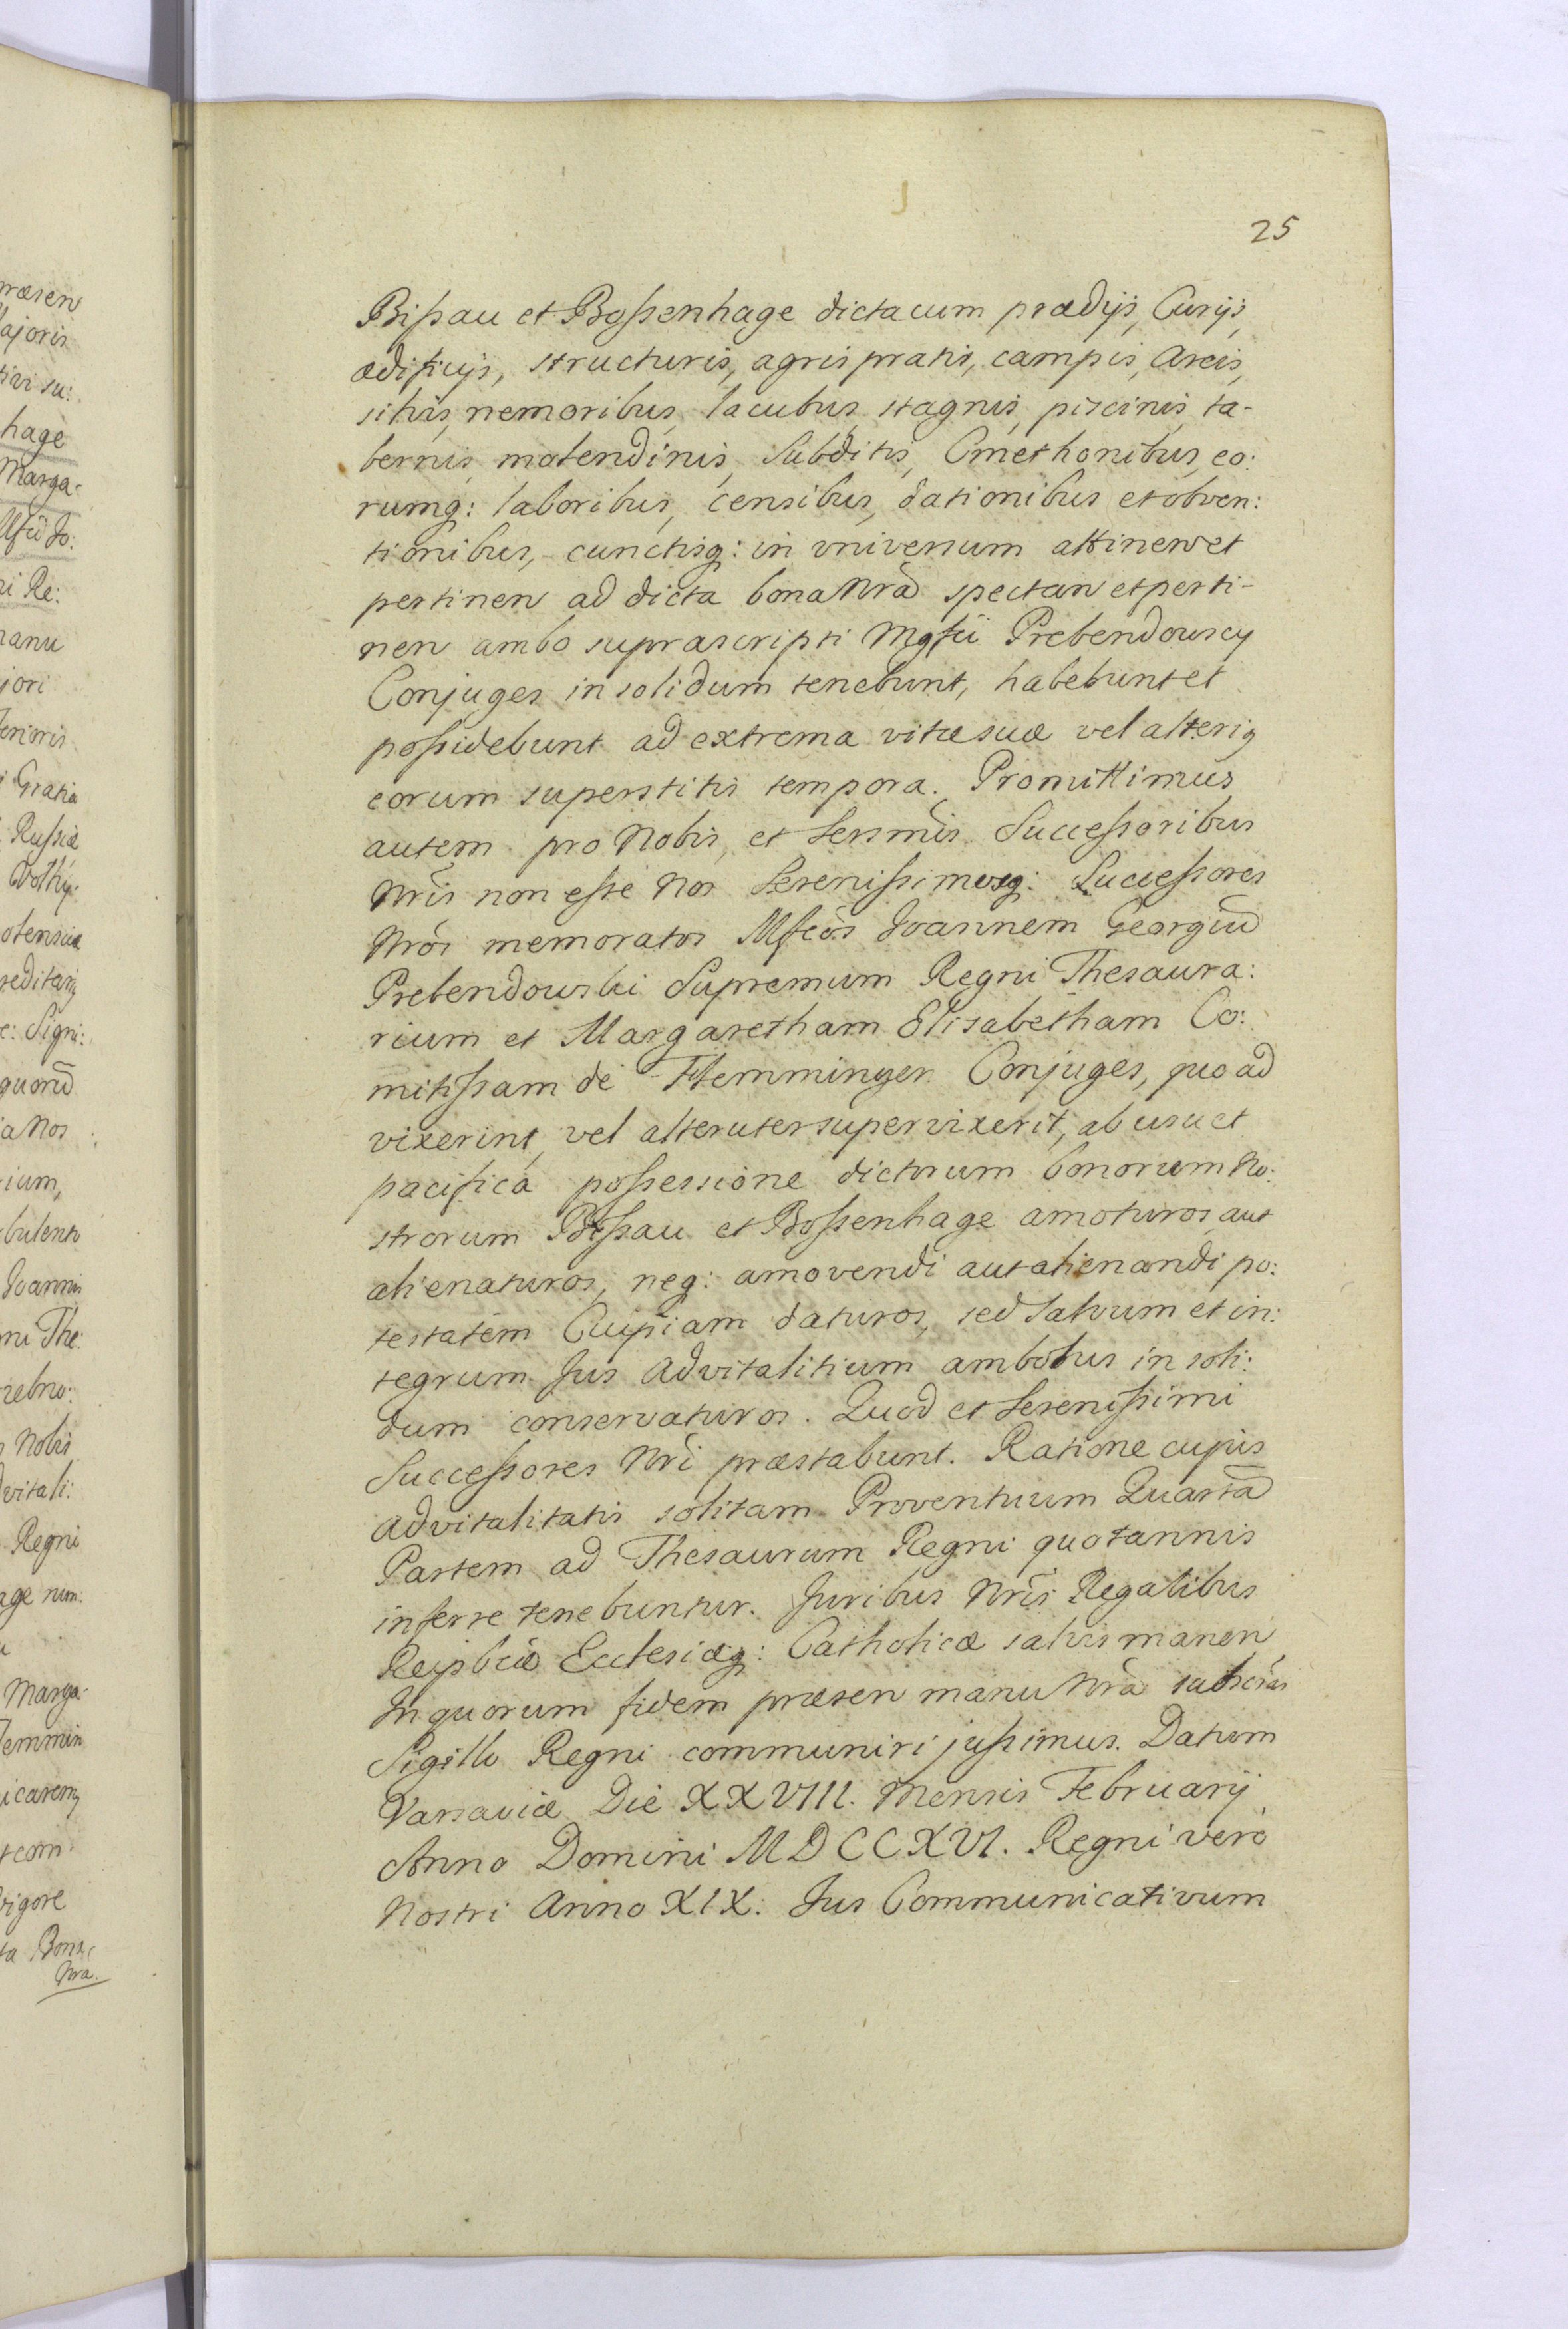 25
Bißau et Boßenhage dicta cum prædijs, Curijs,
ædificijs, structuris, agris pratis, campis, areis,
silvis, nemoribus, lacubus, stagnis, piscinis, ta-
bernis, molendinis, Subditis, Cmethonibus, eo:
rumq: laboribus, censibus, dationibus et obven:
tionibus, cunctisq: in universum attinen et
pertinen ad dicta bona Nrã spectan et perti-
nen ambo suprascripti Mgfci Prebendowscy
Conjuges in solidum tenebunt, habebunt et
poßidebunt ad extrema vitæ suæ vel alteriq
eorum superstitis tempora. Promittimus
autem pro Nobis, et Sersmis Succeßoribus
Nrĩs non eße Nos Serenißimosq: Succeßores
Nrõs memoratos Mfcõs Joannem Georgiũ
Prebendowski Supremum Regni Thesaura:
rium et Margaretham Elisabetham Co:
mitißam de Flemmingen Conjuges, quo ad
vixerint, vel alteruter supervixerit, ab usu et
pacifica poßessione dictorum bonorum No:
strorum Bißau et Boßenhage amoturos aut
alienaturos, neq: amovendi aut alienandi po:
testatem Cuipiam daturos, sed Salvum et in:
tegrum Jus advitalitium ambobus in soli:
dum conservaturos. Quod et Serenißimi
Succeßores Nrĩ præstabunt. Ratione cujus
advitalitatis solitam Proventuum Quartã
Partem ad Thesaurum Regni quotannis
inferre tenebuntur. Juribus Nrĩs Regalibus
Reipbcæ Ecclesiæq: Catholicæ salvis manen
In quorum fidem præsen manu Nrã subscras
Sigillo Regni communiri jußimus. Datum
Varsaviæ Die XXVIII. Mensis Februarij
Anno Domini MDCCXVI. Regni vero
Nostri Anno XIX: Jus Communicativum